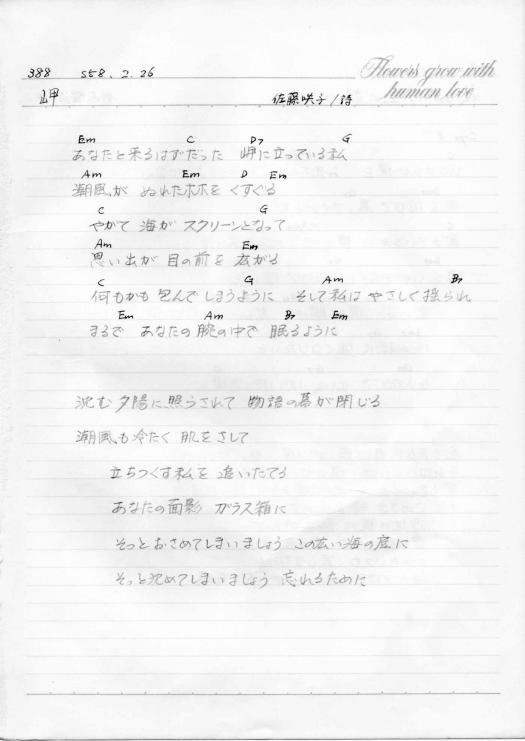 388 S58. 2. 26
Flowers grow with
human love
岬 佐藤咲子/詩
Em C D7 G
あなたと来るはずだった 岬に立っている私
Am Em D Em
潮風が ぬれたホホを くすぐる
C G
やがて 海が スクリーンとなって
Am Em
思い出が 目の前を 広がる
C G Am B7
何もかも 包んで しまうように そして私は やさしく揺られ
Em Am B7 Em
まるで あなたの 腕の中で 眠るように
沈む夕陽に照らされて 物語の幕が閉じる
潮風も冷たく 肌をさして
立ちつくす私を 追いたてる
あなたの面影 ガラス箱に
そっとおさめてしまいましょう この広い海の底に
そっと沈めてしまいましょう 忘れるために